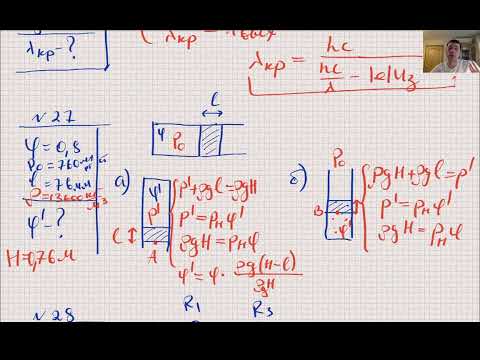 λкр - ?
λкр =
λкр = hc / (hc/λ - |e|Uз)
N 27
φ = 0,8
P₀ = 760 мм
l = 76 мм
ρ = 13600 кг/м³
φ' - ?
H = 0,76 м
l
φ P₀
а)
φ'
P'
l
A
P' + ρgl = ρgH
P' = Pн φ'
ρgH = Pн φ
φ' = φ · ρg(H-l) / ρgH
б)
P₀
B
φ'
ρgH + ρgl = P'
P' = Pн φ'
ρgH = Pн φ
N 28
R₁ R₃